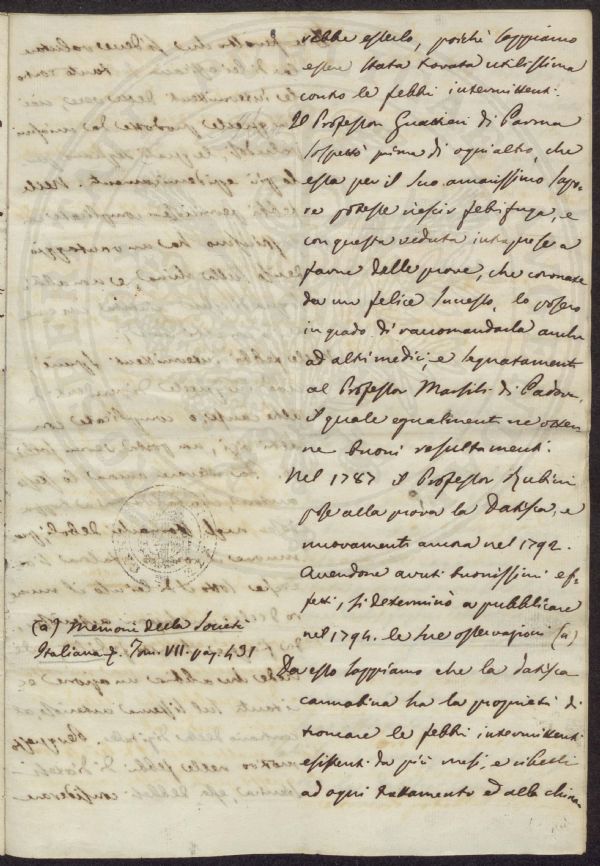 rebbe esserlo, poichè sappiamo
essere stata trovata utilissima
contro le febbri intermittenti.
Il Professor Guatteri di Parma
sospettò prima di ogni altro, che
essa per il suo amarissimo sapo-
re potesse riescir febrifuga, e
con questa veduta intraprese a
farne delle prove, che coronate
da un felice successo, lo posero
in grado di raccomandarla anche
ad altri medici, e segnatamente
al Professor Marsili di Padova,
il quale egualmente ne otten-
ne buoni resultamenti.
Nel 1787 il Professor Rubini
pose alla prova la Datisca, e
nuovamente ancora nel 1792.
Avendone avuti buonissimi ef-
fetti, si determinò a pubblicare
nel 1794. le sue osservazioni (a)
(a) Memorie della Società
Italiana &. Tom. VII. pag. 431
Da esso sappiamo che la datisca
cannabina ha la proprietà di
troncare le febbri intermittenti
esistenti da più mesi, e ribelli
ad ogni trattamento ed alla china